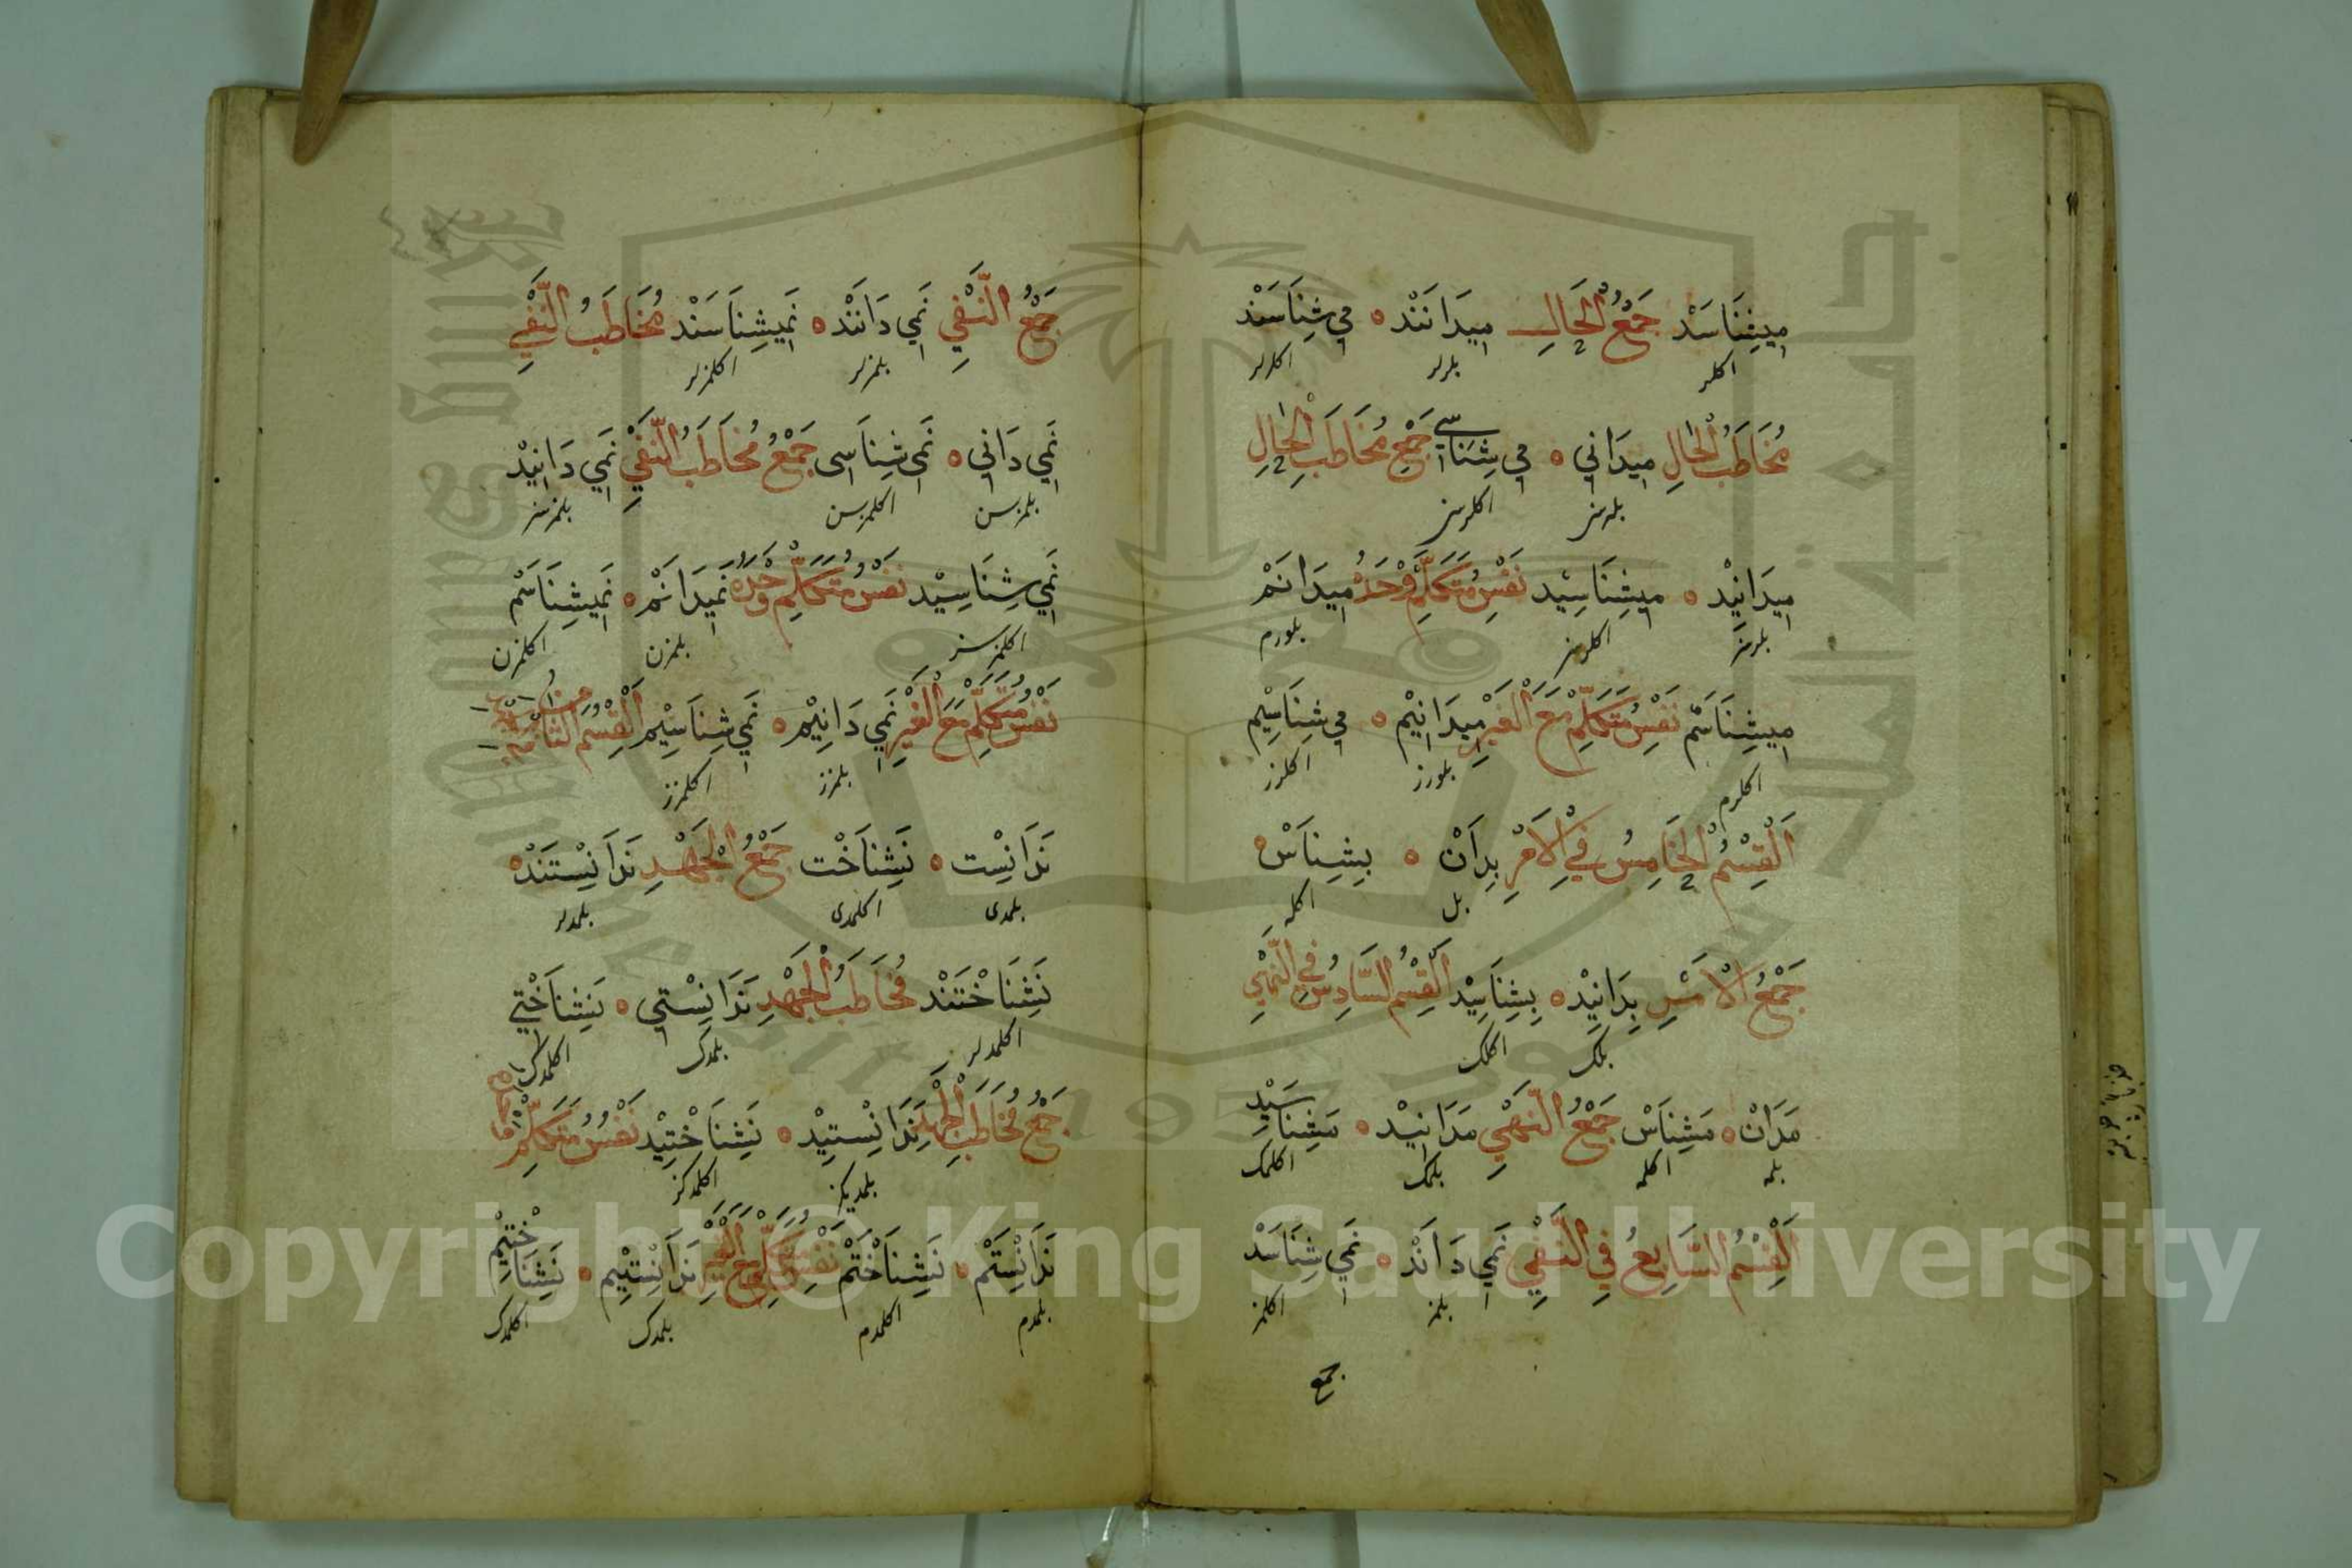 مِيشِنَاسَدْ جَمْعُ الْحَالِ مِيدَانَنْدْ ه مِي شِنَاسَنْد
اكلر بلرلر اكلرلر
مُخَاطَبُ الْحَالِ مِيدَانِي ه مِي شِنَاسِي جَمْعِ مُخَاطَبِ الْحَالِ
بلرسن اكلرسن
مِيدَانِيْد ه مِيشِنَاسِيْد نَفْسِ مُتَكَلِّمْ وَحْدَهُ مِيدَانَمْ
بلرسز اكلرسز بلورم
مِيشِنَاسَمْ نَفْسِ مُتَكَلِّمْ مَعَ الْغَيْرِ مِيدَانِيْم ه مِي شِنَاسِيْم
اكلرم بلورز اكلرز
اَلْقِسْمُ الْخَامِسُ فِي الْاَمْرِ بِدَانْ ه بِشِنَاسْ ه
بل اكله
جَمْعُ الْاَمْرِ بِدَانِيْد ه بِشِنَاسِيْد اَلْقِسْمُ السَّادِسُ فِي النَّهْيِ
بلك اكلك
مَدَانْ ه مَشِنَاسْ جَمْعُ النَّهْيِ مَدَانِيْد ه مَشِنَاسِيْد
بلمه اكلمه بلمك اكلمك
اَلْقِسْمُ السَّابِعُ فِي النَّفْيِ نَمِي دَانَدْ ه نَمِي شِنَاسَدْ
بلمز اكلمز
جمع
جَمْعُ النَّفْيِ نَمِي دَانَنْد ه نَمِيشِنَاسَنْد مُخَاطَبُ النَّفْيِ
بلمزلر اكلمزلر
نَمِي دَانِي ه نَمِي شِنَاسِي جَمْعُ مُخَاطَبُ النَّفْيِ نَمِي دَانِيْد
بلمزسن اكلمزسن بلمزسز
نَمِي شِنَاسِيْد نَفْسُ مُتَكَلِّمْ وَحْدَهُ نَمِيدَانَمْ ه نَمِيشِنَاسَمْ
اكلمزسز بلمزن اكلمزن
نَفْسُ مُتَكَلِّمْ مَعَ الْغَيْرِ نَمِي دَانِيْم ه نَمِي شِنَاسِيْم اَلْقِسْمُ الثَّامِنُ
بلمزز اكلمزز
نَدَانِسْت ه نَشِنَاخْت جَمْعُ الْجَهْدِ نَدَانِسْتَنْد ه
بلمدى اكلمدى بلمدلر
نَشِنَاخْتَنْد مُخَاطَبُ الْجَهْدِ نَدَانِسْتِي ه نَشِنَاخْتِي
اكلمدلر بلمدك اكلمدك
جَمْعُ مُخَاطَبِ الْجَهْدِ نَدَانِسْتِيْد ه نَشِنَاخْتِيْد نَفْسُ مُتَكَلِّمْ
بلمديكز اكلمدكز
نَدَانِسْتَمْ ه نَشِنَاخْتَمْ نَفْسِ مُتَكَلِّمْ مَعَ الْغَيْرِ نَدَانِسْتِيْم ه نَشِنَاخْتِيْم
بلمدم اكلمدم بلمدك اكلمدك
Copyright © King Saud University